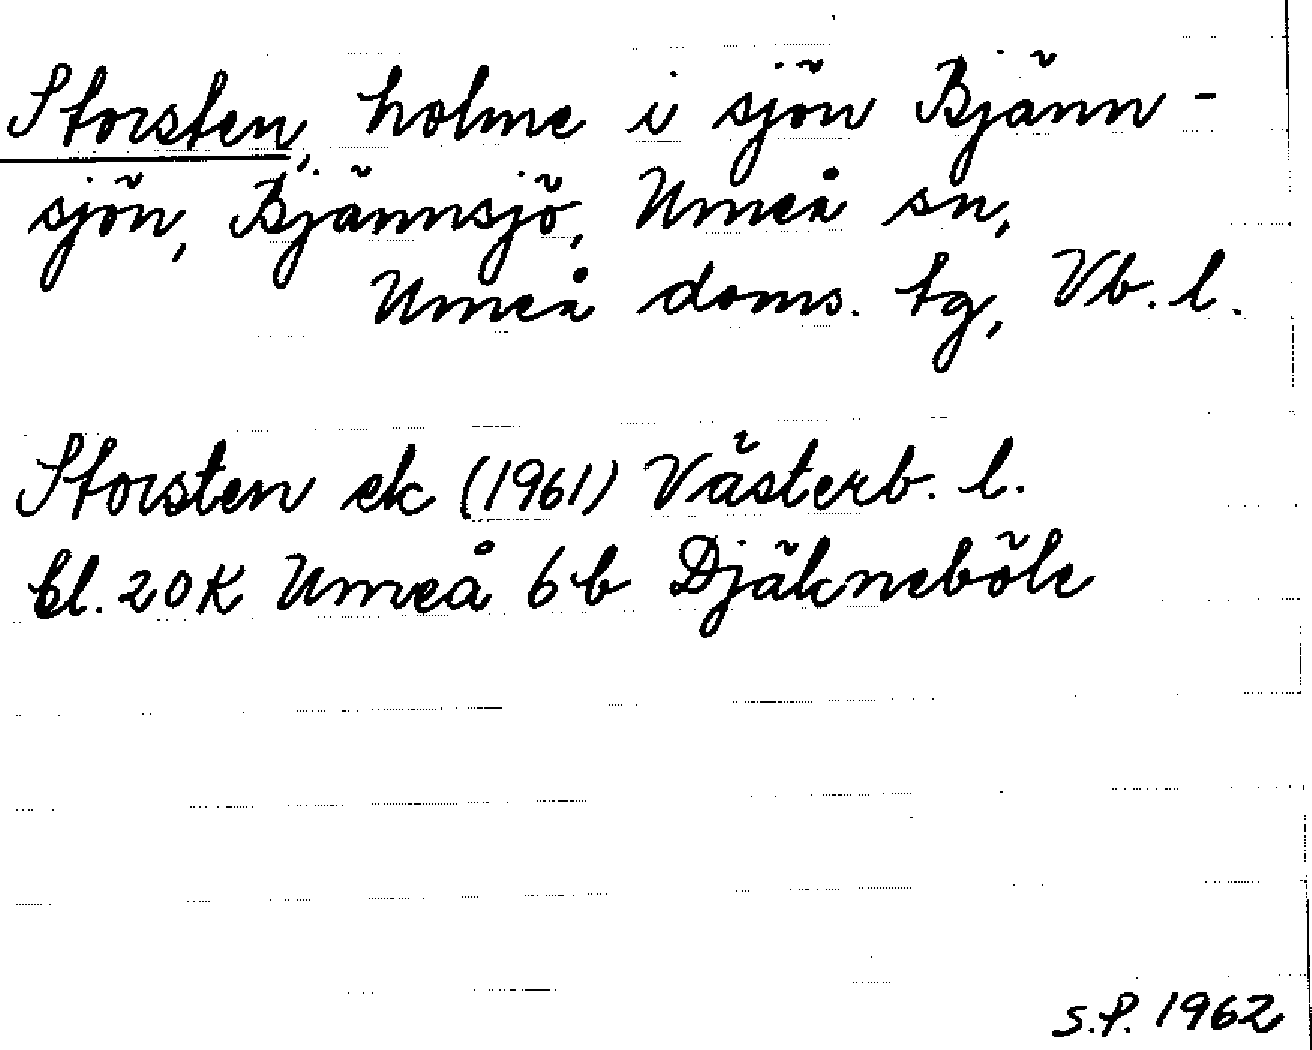 Storsten, holme i sjön Bjänn-
sjön, Bjännsjö, Umeå sn,
Umeå doms. tg, Vb. l.
Storsten ek (1961) Västerb. l.
bl. 20K Umeå 6b Djäkneböle
S.P. 1962